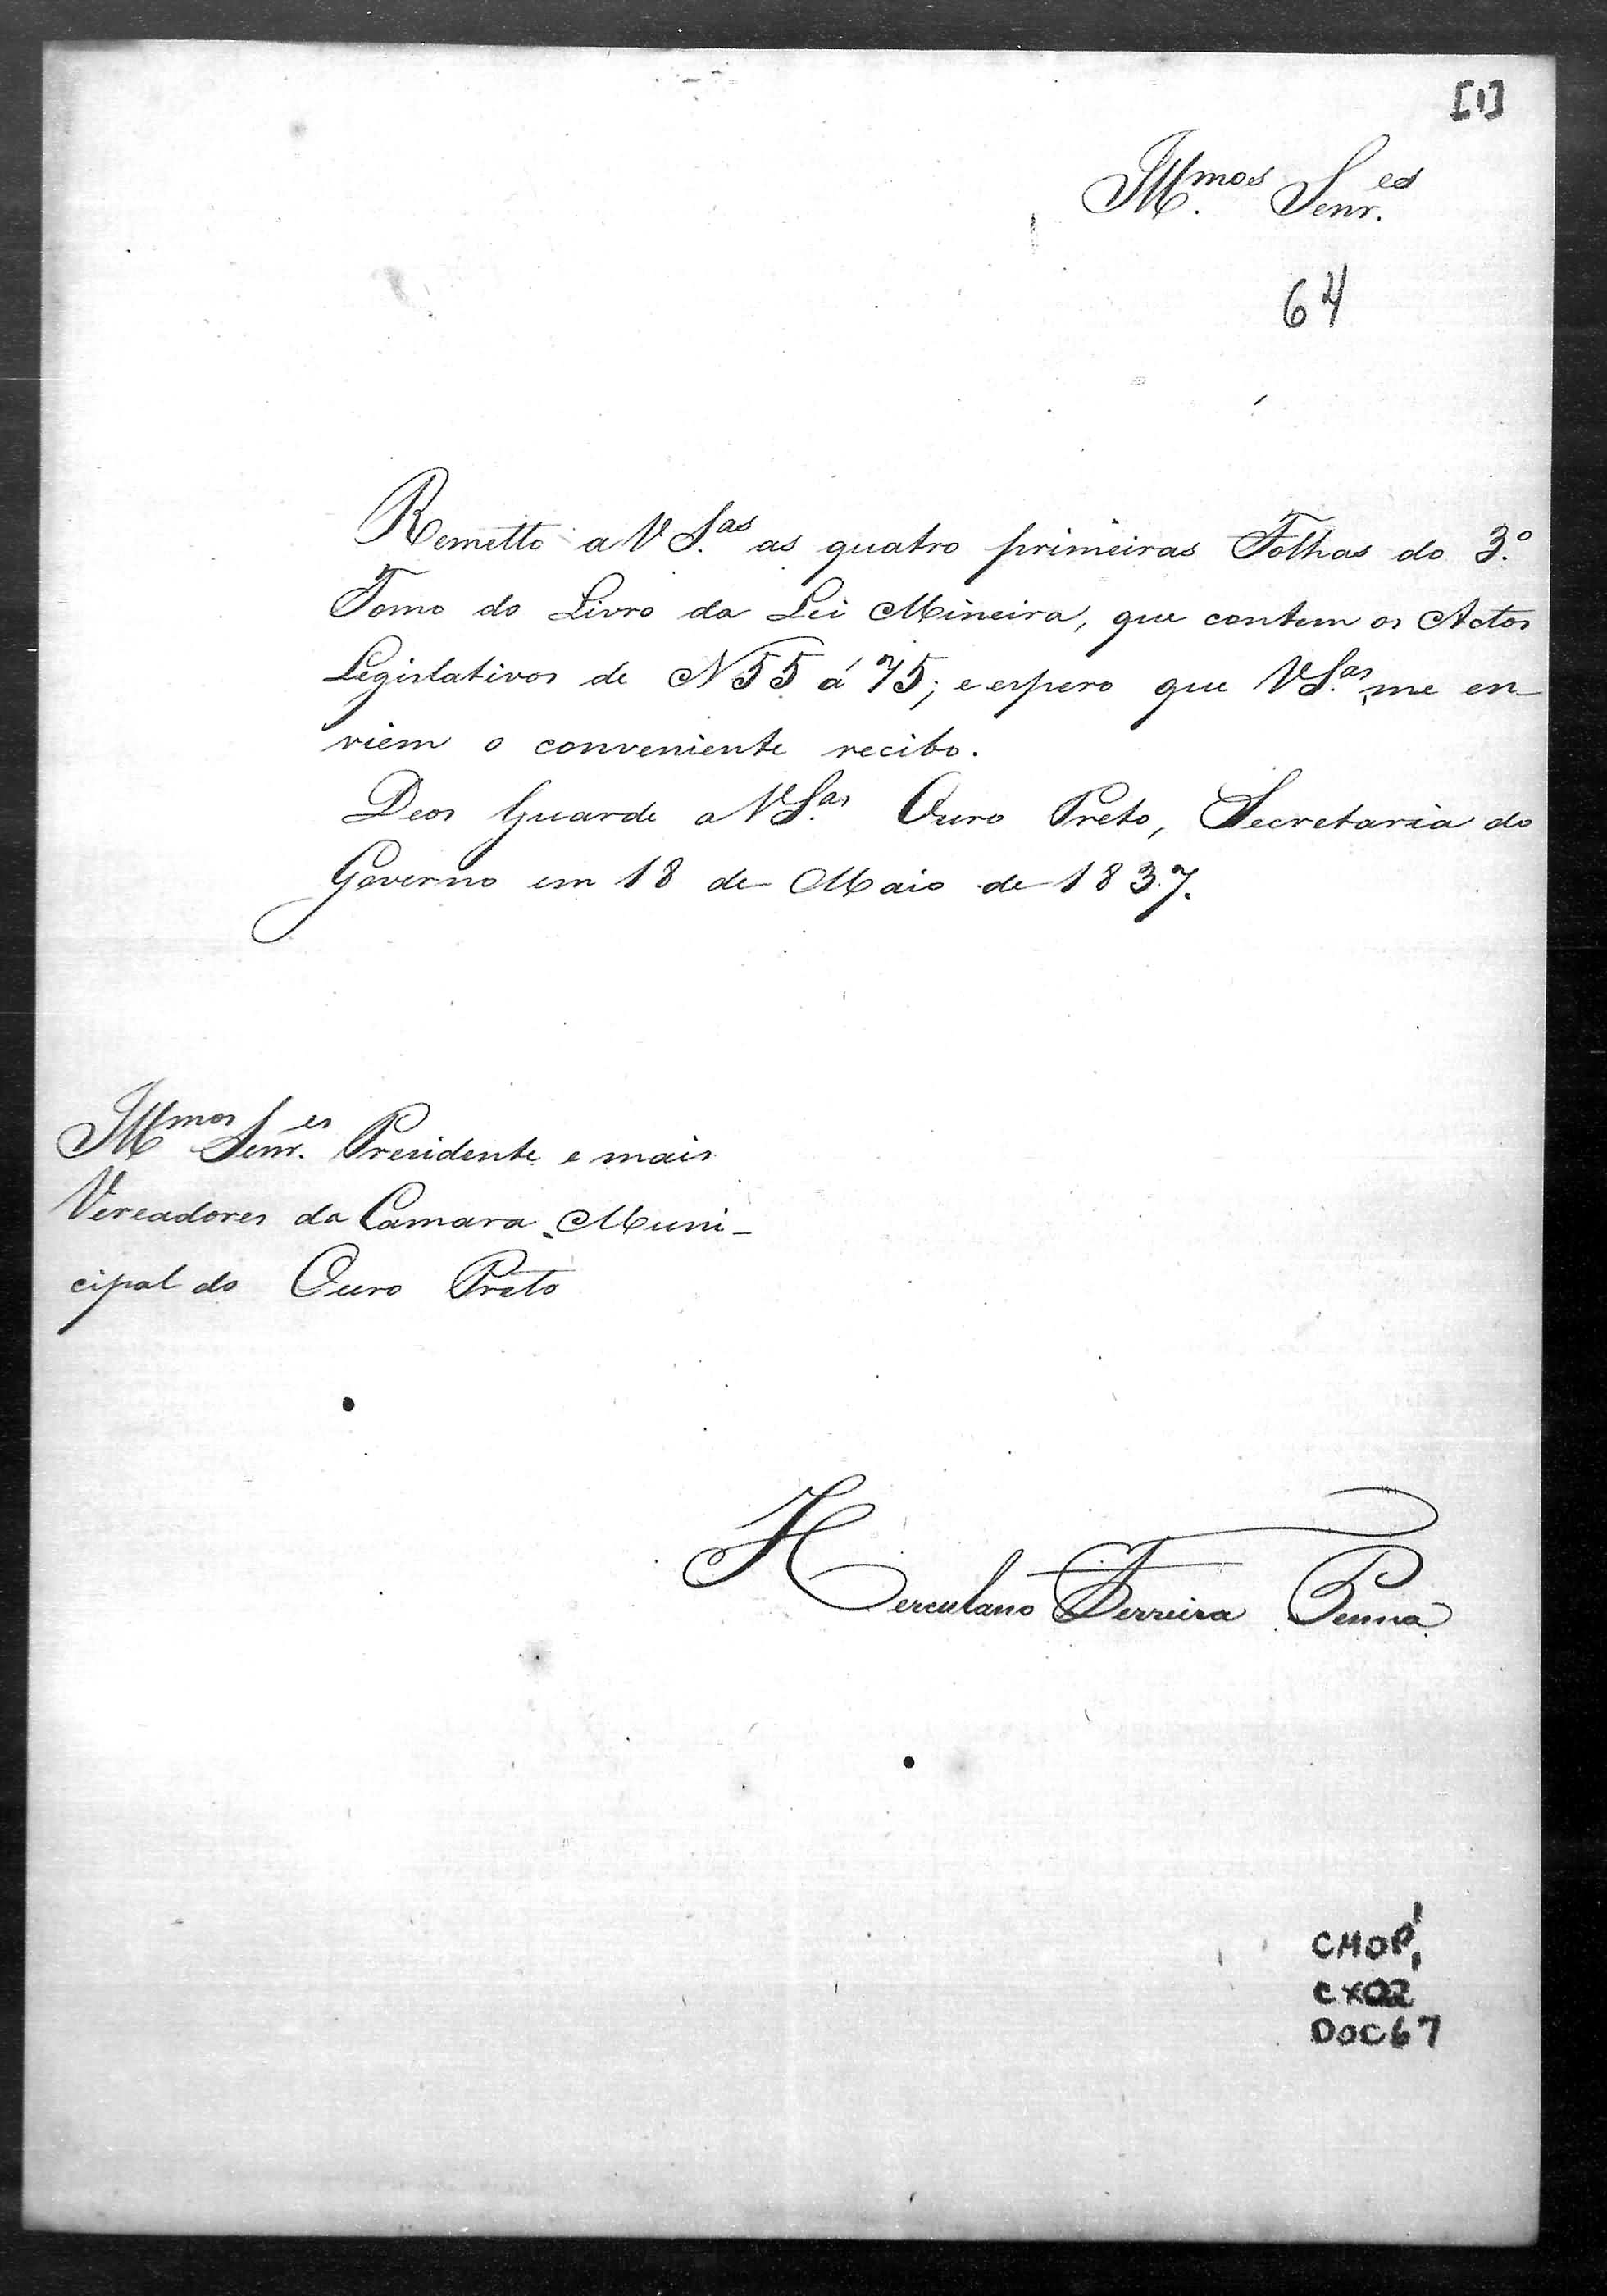 [1]
Illmos Senr.es
64
Remetto a V S.as as quatro primeiras Folhas do 3.º
Tomo do Livro da Lei Mineira, que contem os Actos
Legislativos de N 55 á 75; e espero que V S.as me en-
viem o conveniente recibo.
Deos Guarde a V S.as Ouro Preto, Secretaria do
Governo em 18 de Maio de 1837.
Illmos Senr.es Presidente e mais
Vereadores da Camara Muni-
cipal do Ouro Preto
Herculano Ferreira Penna
CMOP
CX02
DOC67